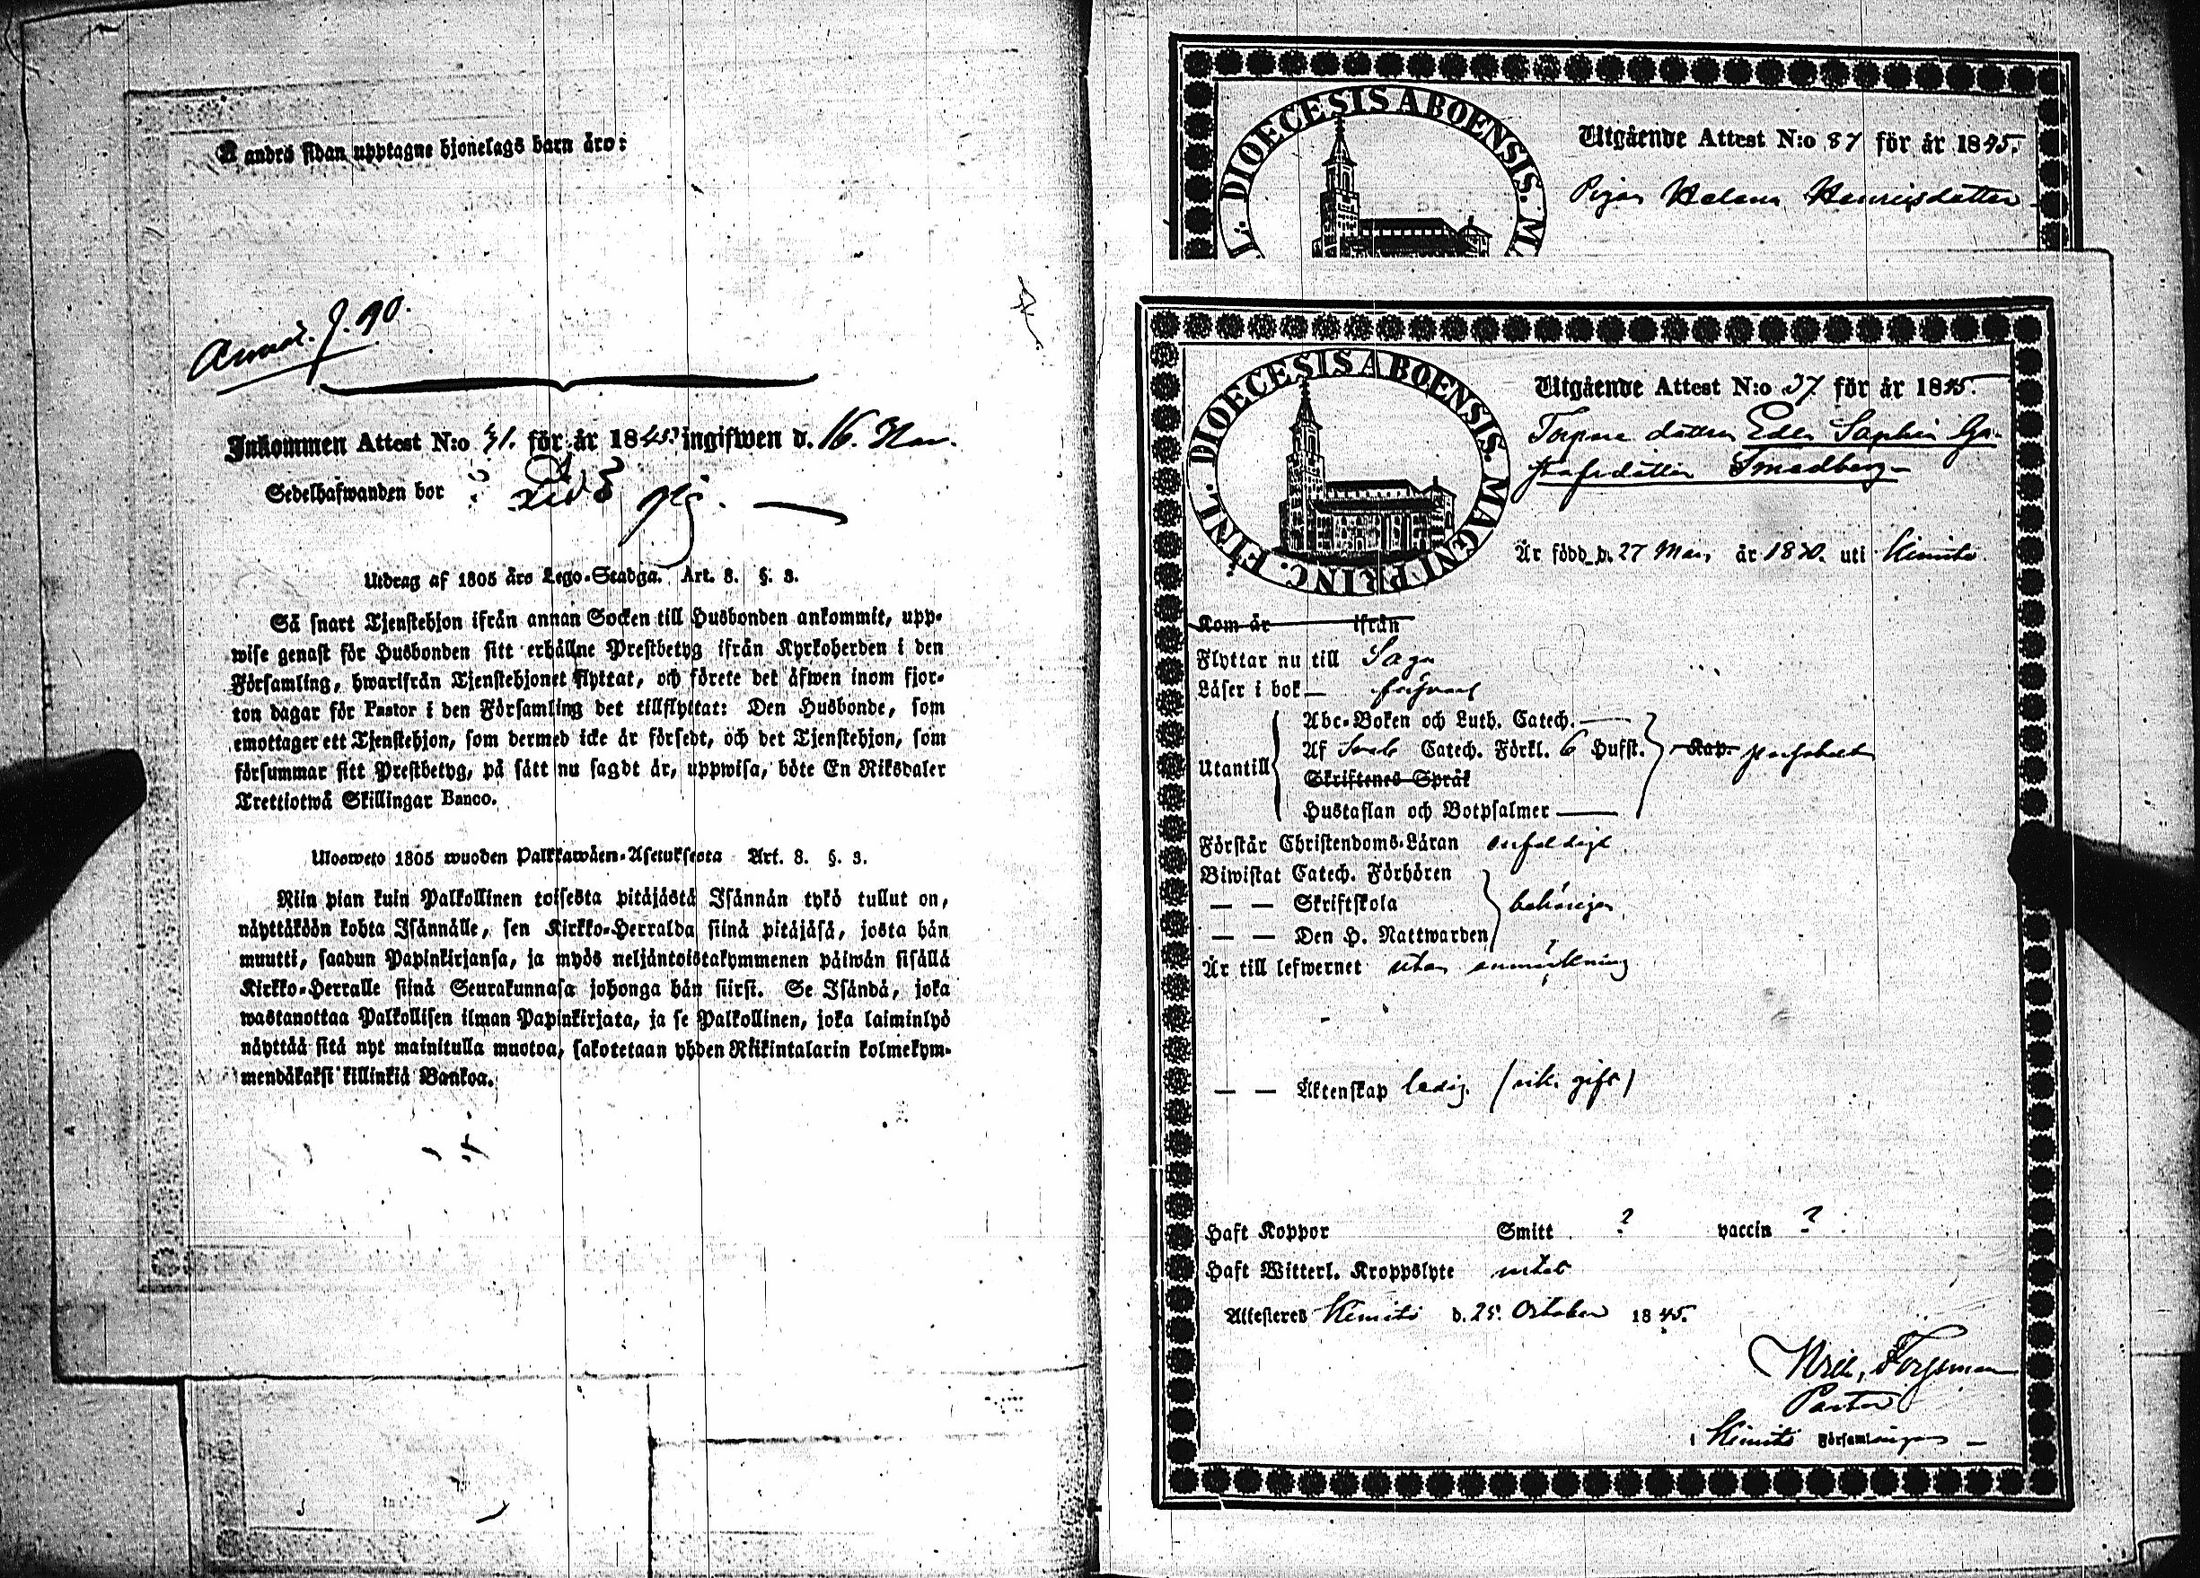 Å andra sidan upptagne hjonelags barn äro:
Annot. p. 90.
Inkommen Attest N:o 31. för år 1845. ingifwen d. 16. Nov.
Sedelhafwanden bor
Utdrag af 1805 års Lego-Stadga. Art. 8. §. 3.
Så snart Tjenstehjon ifrån annan Socken till Husbonden ankommit, upp-
wise genast för Husbonden sitt erhållne Prestbetyg ifrån Kyrkoherden i den
Församling, hwarifrån Tjenstehjonet flyttat, och förete det äfwen inom fjor-
ton dagar för Pastor i den Församling det tillflyttat: Den Husbonde, som
emottager ett Tjenstehjon, som dermed icke är försedt, och det Tjenstehjon, som
försummar sitt Prestbetyg, på sätt nu sagdt är, uppwisa, böte En Riksdaler
Trettiotwå Skillingar Banco.
Ulosweto 1805 wuoden Palkkawäen-Asetuksesta Art. 8. §. 3.
Niin pian kuin Palkollinen toisesta pitäjästä Isännän tykö tullut on,
näyttäköön kohta Isännälle, sen Kirkko-Herralda siinä pitäjäsä, josta hän
muutti, saadun Papinkirjansa, ja myös neljäntoistakymmenen päiwän sisällä
Kirkko-Herralle siinä Seurakunnasa johonga hän siirsi. Se Isändä, joka
wastanottaa Palkollisen ilman Papinkirjata, ja se Palkollinen, joka laiminlyö
näyttää sitä nyt mainitulla muotoa, sakotetaan yhden Riikintalarin kolmekym-
mendäkaksi killinkiä Bankoa.
DIOECESIS ABOENSIS. M
Utgående Attest N:o 87 för år 1845.
Pigan Helena Henricsdotter
FINL. DIOECESIS ABOENSIS. MAGNI PRINC.
Utgående Attest N:o 37 för år 1845.
Torpare dottren Edla Sophia Gu-
stafsdotter Smedberg
Är född d. 27 Mar, år 1830. uti Kimito
Kom år ifrån
Flyttar nu till Sagu
Läser i bok — försvarl
Utantill
Abc-Boken och Luth. Catech. —
Af Sveb Catech. Förkl. 6 Hufst. Kap
Skriftenes Språk
Hustaflan och Botpsalmer —
Förstår Christendoms-Läran enfaldigt
Biwistat Catech. Förhören
— — Skriftskola behörigen
— — Den H. Nattwarden
Är till lefwernet utan anmärkning
— — Äktenskap ledig. (icke gift)
Haft Koppor Smitt ? vaccin ?
Haft Witterl. Kroppslyte intet
Attesteres Kimito d. 25. October 1845.
Pastor
i Kimito Församlingen —